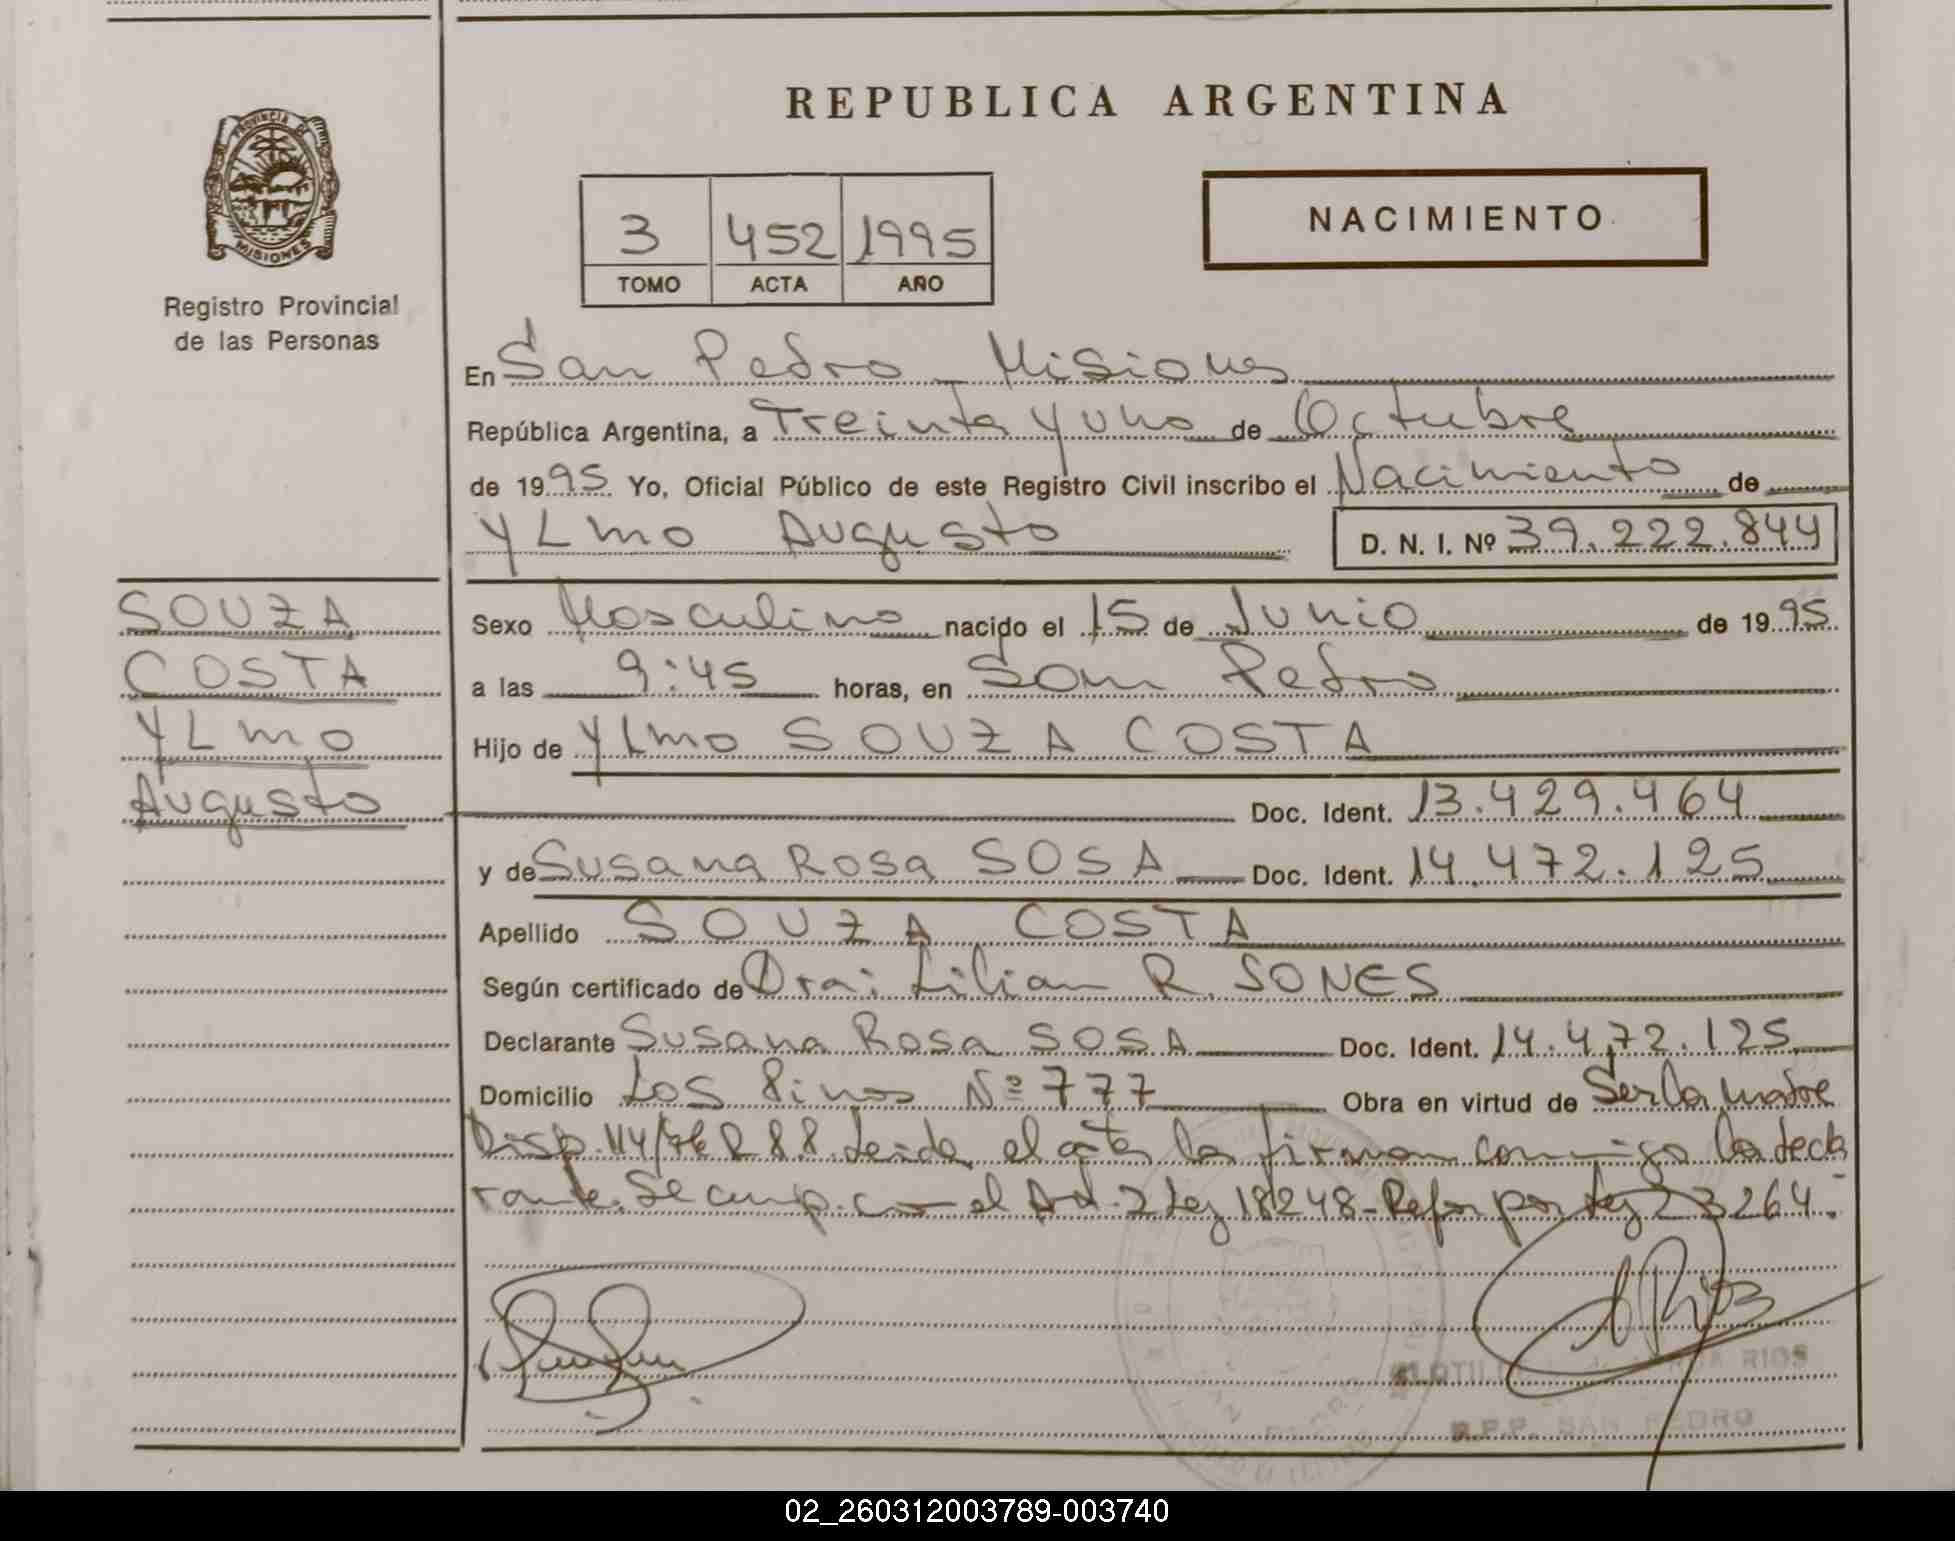 REPUBLICA ARGENTINA
PROVINCIA DE
MISIONES
Registro Provincial
de las Personas
3 452 1995
TOMO ACTA AÑO
NACIMIENTO
En San Pedro - Misiones
República Argentina, a Treinta y uno de Octubre
de 1995 Yo, Oficial Público de este Registro Civil inscribo el Nacimiento de
YLmo Augusto D. N. I. Nº 39.222.844
SOUZA
COSTA
YLmo
Augusto
Sexo Masculino nacido el 15 de Junio de 1995
a las 9:45 horas, en San Pedro
Hijo de Ylmo SOUZA COSTA
Doc. Ident. 13.429.464
y de Susana Rosa SOSA Doc. Ident. 14.472.125
Apellido SOUZA COSTA
Según certificado de Dra: Lilian R. SONES
Declarante Susana Rosa SOSA Doc. Ident. 14.472.125
Domicilio Los Pinos Nº 777 Obra en virtud de Ser la madre
Disp. 114/76 Leida el acta la firman conmigo la decla
rante. Se cump. con el Art. 2 Ley 18248 - Refor por Ley 23264.
RIOS
R.P.P. SAN PEDRO
02_260312003789-003740